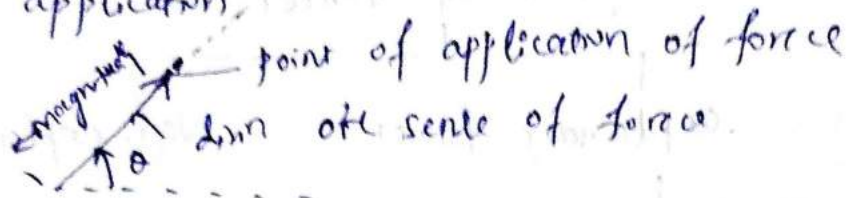 application
magnitude
point of application of force
θ
dirn or sense of force